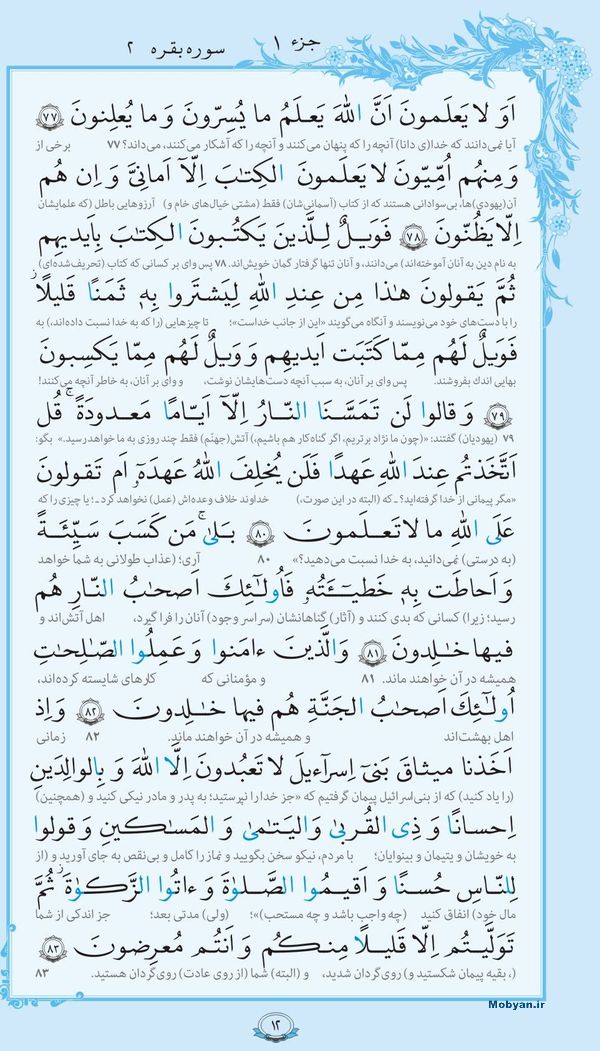 جزء ۱
سوره بقره ۲
اَوَ لا یَعلَمونَ اَنَّ اللهَ یَعلَمُ ما یُسِرّونَ وَ ما یُعلِنونَ ﴿۷۷﴾
آیا نمی‌دانند که خدا(ی دانا) آنچه را که پنهان می‌کنند و آنچه را که آشکار می‌کنند، می‌داند؟ ۷۷ برخی از
وَ مِنهُم اُمِّیّونَ لا یَعلَمونَ الکِتٰبَ اِلّا اَمانِیَّ وَ اِن هُم
آن(یهودی)ها، بی‌سوادانی هستند که از کتاب (آسمانی‌شان) فقط (مشتی خیال‌های خام و) آرزوهایی باطل (که علمایشان
اِلّا یَظُنّونَ ﴿۷۸﴾ فَوَیلٌ لِلَّذینَ یَکتُبونَ الکِتٰبَ بِاَیدیهِم
به نام دین به آنان آموخته‌اند) می‌دانند، و آنان تنها گرفتار گمان خویش‌اند. ۷۸ پس وای بر کسانی که کتاب (تحریف‌شده‌ای)
ثُمَّ یَقولونَ هٰذا مِن عِندِ اللهِ لِیَشتَروا بِهٖ ثَمَنًا قَلیلًا ۖ
را با دست‌های خود می‌نویسند و آنگاه می‌گویند «این از جانب خداست»؛ تا چیزهایی (را که به خدا نسبت داده‌اند)، به
فَوَیلٌ لَهُم مِمّا کَتَبَت اَیدیهِم وَ وَیلٌ لَهُم مِمّا یَکسِبونَ
بهایی اندك بفروشند. پس وای بر آنان، به سبب آنچه دست‌هایشان نوشت، و وای بر آنان، به خاطر آنچه به دست می‌کنند!
﴿۷۹﴾ وَ قالوا لَن تَمَسَّنَا النّارُ اِلّا اَیّامًا مَعدودَةً ۚ قُل
۷۹ (یهودیان) گفتند: «(چون ما نژاد برتریم، اگر گناه‌کار هم باشیم،) آتش (جهنّم) فقط چند روزی به ما خواهد رسید.» بگو:
اَتَّخَذتُم عِندَ اللهِ عَهدًا فَلَن یُخلِفَ اللهُ عَهدَهٗ اَم تَقولونَ
«مگر پیمانی از خدا گرفته‌اید؟ ـ که (البته در این صورت،) خداوند خلاف وعده‌اش (عمل) نخواهد کرد ـ؛ یا چیزی را که
عَلَی اللهِ ما لا تَعلَمونَ ﴿۸۰﴾ بَلیٰ ۚ مَن کَسَبَ سَیِّئَةً
(به درستی) نمی‌دانید، به خدا نسبت می‌دهید؟» ۸۰ آری؛ (عذاب طولانی به شما خواهد
وَ اَحاطَت بِهٖ خَطیٓـَٔتُهٗ فَاُولٰٓئِكَ اَصحٰبُ النّارِ هُم
رسید؛ زیرا) کسانی که بدی کنند و (آثار) گناهانشان (سراسر وجود) آنان را فرا گیرد، اهل آتش‌اند و
فیها خٰلِدونَ ﴿۸۱﴾ وَ الَّذینَ ءامَنوا وَ عَمِلُوا الصّٰلِحٰتِ
همیشه در آن خواهند ماند. ۸۱ و مؤمنانی که کارهای شایسته کرده‌اند،
اُولٰٓئِكَ اَصحٰبُ الجَنَّةِ هُم فیها خٰلِدونَ ﴿۸۲﴾ وَ اِذ
اهل بهشت‌اند و همیشه در آن خواهند ماند. ۸۲ زمانی
اَخَذنا میثاقَ بَنیٓ اِسرآءیلَ لا تَعبُدونَ اِلَّا اللهَ وَ بِالوالِدَینِ
(را یاد کنید) که از بنی‌اسرائیل پیمان گرفتیم که «جز خدا را نپرستید؛ به پدر و مادر نیکی کنید و (همچنین)
اِحسانًا وَ ذِی القُربیٰ وَ الیَتٰمیٰ وَ المَسٰکینِ وَ قولوا
به خویشان و یتیمان و بینوایان؛ با مردم، نیکو سخن بگویید و نماز را کامل و بی‌نقص به جای آورید و (از
لِلنّاسِ حُسنًا وَ اَقیمُوا الصَّلوٰةَ وَ ءاتُوا الزَّکوٰةَ ۖ ثُمَّ
مال خود) انفاق کنید (چه واجب باشد و چه مستحب)»؛ (ولی) مدتی بعد؛ جز اندکی از شما
تَوَلَّیتُم اِلّا قَلیلًا مِنکُم وَ اَنتُم مُعرِضونَ ﴿۸۳﴾
(، بقیه پیمان شکستید و) روی‌گردان شدید، و (البته) شما (از روی عادت) روی‌گردان هستید. ۸۳
Mobyan.ir
۱۲